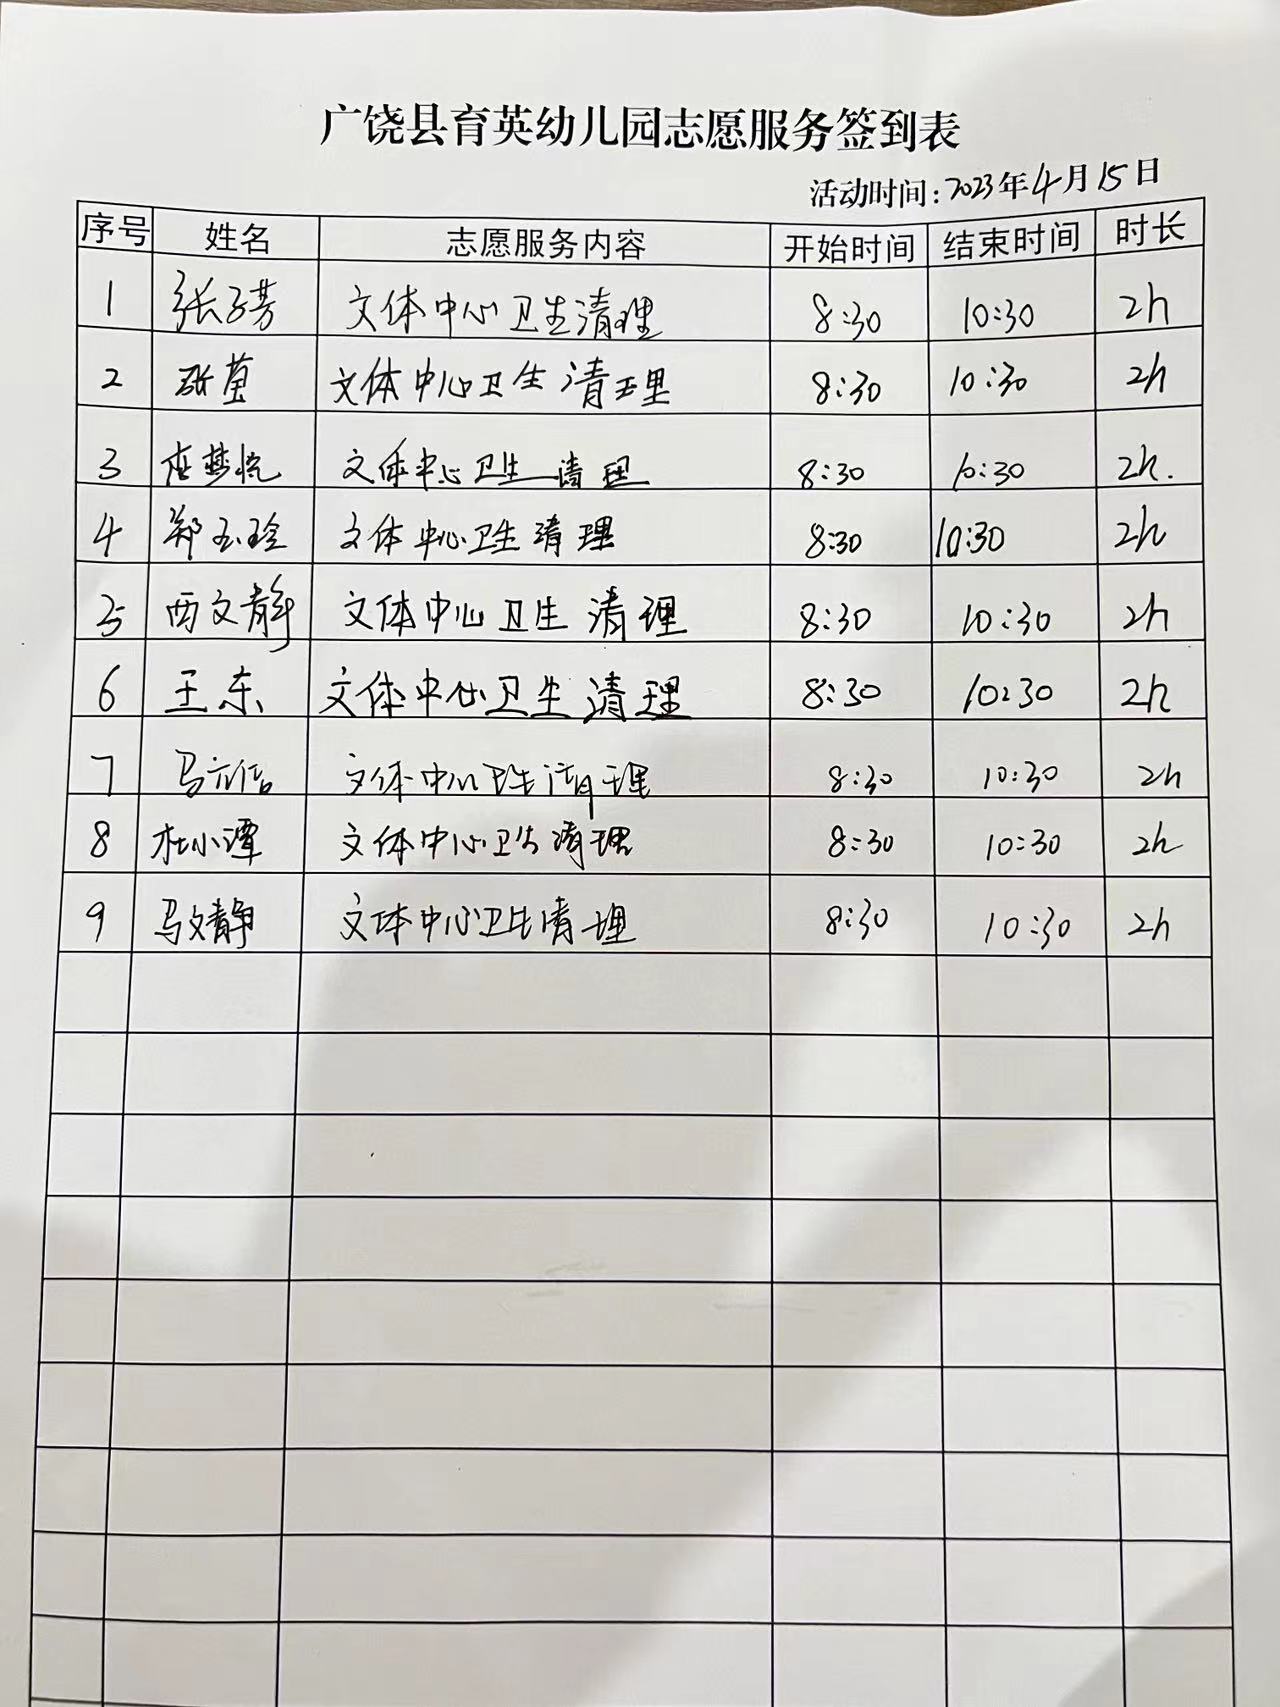 广饶县育英幼儿园志愿服务签到表
活动时间：2023年4月15日
序号 姓名 志愿服务内容 开始时间 结束时间 时长
1 张子芳 文体中心卫生清理 8:30 10:30 2h
2 张莹 文体中心卫生清理 8:30 10:30 2h
3 文体中心卫生清理 8:30 10:30 2h.
4 郑玉玲 文体中心卫生清理 8:30 10:30 2h
5 西文静 文体中心卫生清理 8:30 10:30 2h
6 王东 文体中心卫生清理 8:30 10:30 2h
7 马 文体中心卫生清理 8:30 10:30 2h
8 杜小潭 文体中心卫生清理 8:30 10:30 2h
9 马文静 文体中心卫生清理 8:30 10:30 2h